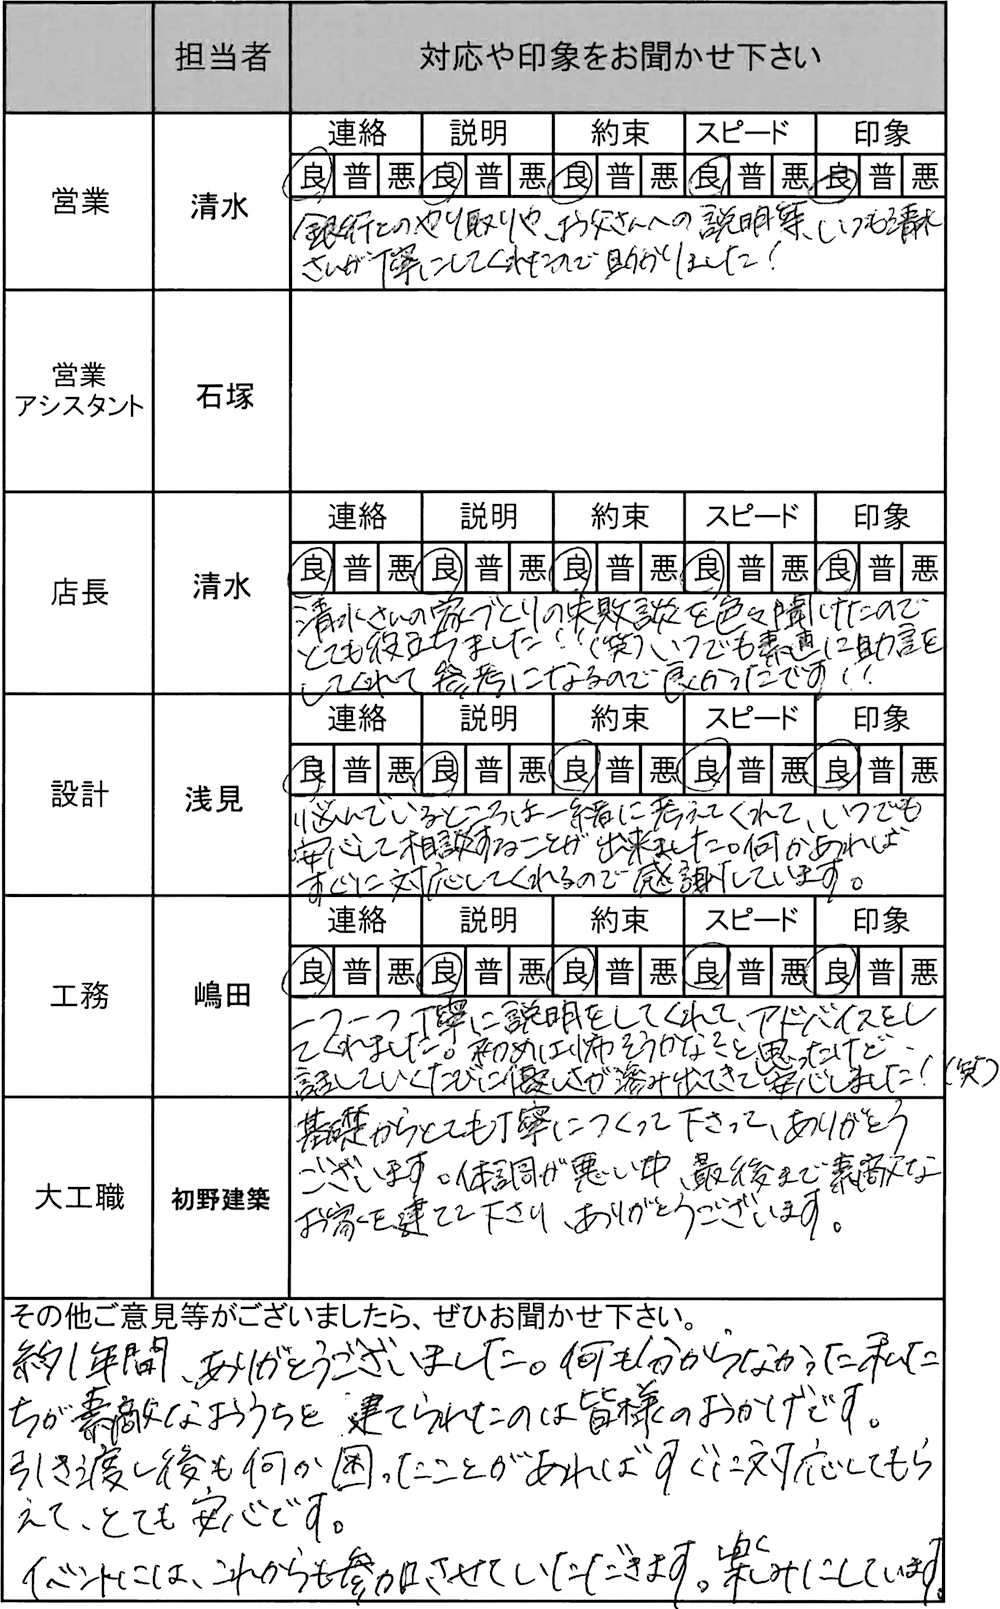 担当者 対応や印象をお聞かせ下さい
連絡 説明 約束 スピード 印象
良 普 悪 良 普 悪 良 普 悪 良 普 悪 良 普 悪
営業 清水
銀行とのやり取りや、お父さんへの説明等、いつも清水
さんが丁寧にしてくれたので助かりました!
営業
アシスタント 石塚
連絡 説明 約束 スピード 印象
良 普 悪 良 普 悪 良 普 悪 良 普 悪 良 普 悪
店長 清水
清水さんの家づくりの失敗談を色々聞けたので
とても役立ちました!!(笑)いつでも素直に助言を
してくれて参考になるので良かったです!!
連絡 説明 約束 スピード 印象
良 普 悪 良 普 悪 良 普 悪 良 普 悪 良 普 悪
設計 浅見
悩んでいるところは一緒に考えてくれて、いつでも
安心して相談することが出来ました。何かあれば
すぐに対応してくれるので感謝しています。
連絡 説明 約束 スピード 印象
良 普 悪 良 普 悪 良 普 悪 良 普 悪 良 普 悪
工務 嶋田
一つ一つ丁寧に説明をしてくれて、アドバイスをし
てくれました。初めは怖そうかな?と思ったけど、
話していくたびに優しさが滲み出てきて安心しました!(笑)
大工職 初野建築
基礎からとても丁寧につくって下さって、ありがとう
ございます。体調が悪い中、最後まで素敵な
お家を建てて下さり、ありがとうございます。
その他ご意見等がございましたら、ぜひお聞かせ下さい。
約1年間、ありがとうございました。何も分からなかった私た
ちが素敵なおうちを建てられたのは皆様のおかげです。
引き渡し後も何か困ったことがあればすぐに対応してもら
えて、とても安心です。
イベントには、これからも参加させていただきます。楽しみにしています。